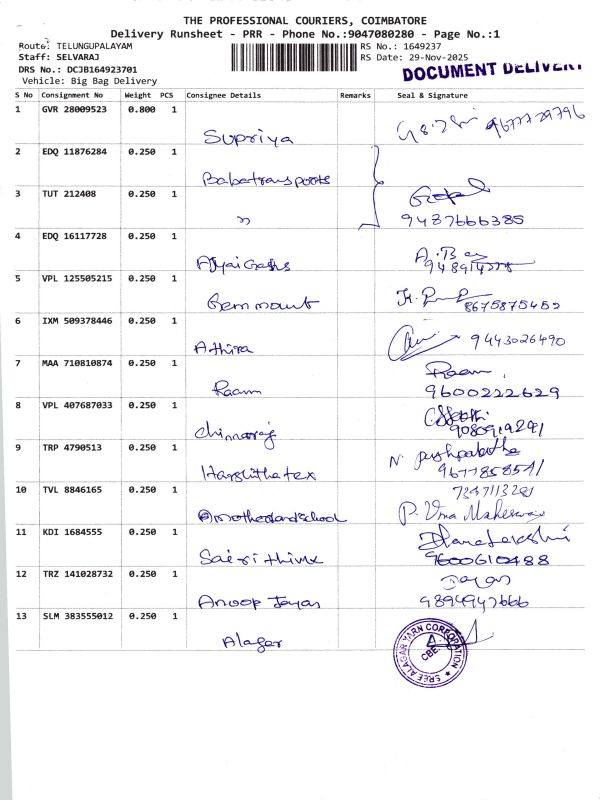 THE PROFESSIONAL COURIERS, COIMBATORE
Delivery Runsheet - PRR - Phone No.:9047080280 - Page No.:1
Route: TELUNGUPALAYAM
RS No.: 1649237
Staff: SELVARAJ
RS Date: 29-Nov-2025
DRS No.: DCJB164923701
DOCUMENT DELIVERY
Vehicle: Big Bag Delivery
S No Consignment No Weight PCS Consignee Details Remarks Seal & Signature
1 GVR 28009523 0.800 1
Supriya 9677729796
2 EDQ 11876284 0.250 1
Babatransports
3 TUT 212408 0.250 1
" 9487666385
4 EDQ 16117728 0.250 1
5 VPL 125505215 0.250 1
Gemmount 8675875452
6 IXM 509378446 0.250 1
Athira 9443026490
7 MAA 710810874 0.250 1
Raam Raam
9600222629
8 VPL 407687033 0.250 1
Chinnaraj
9 TRP 4790513 0.250 1
Harslithatex N. pushpalatha
10 TVL 8846165 0.250 1
7397113291
P. Uma Maheswari
11 KDI 1684555 0.250 1
Dhanalakshmi
9600610488
12 TRZ 141028732 0.250 1
Anoop Jayan Jayan
9894947666
13 SLM 383555012 0.250 1
Alagar
SREE ALAGAR YARN CORPORATION
CBE